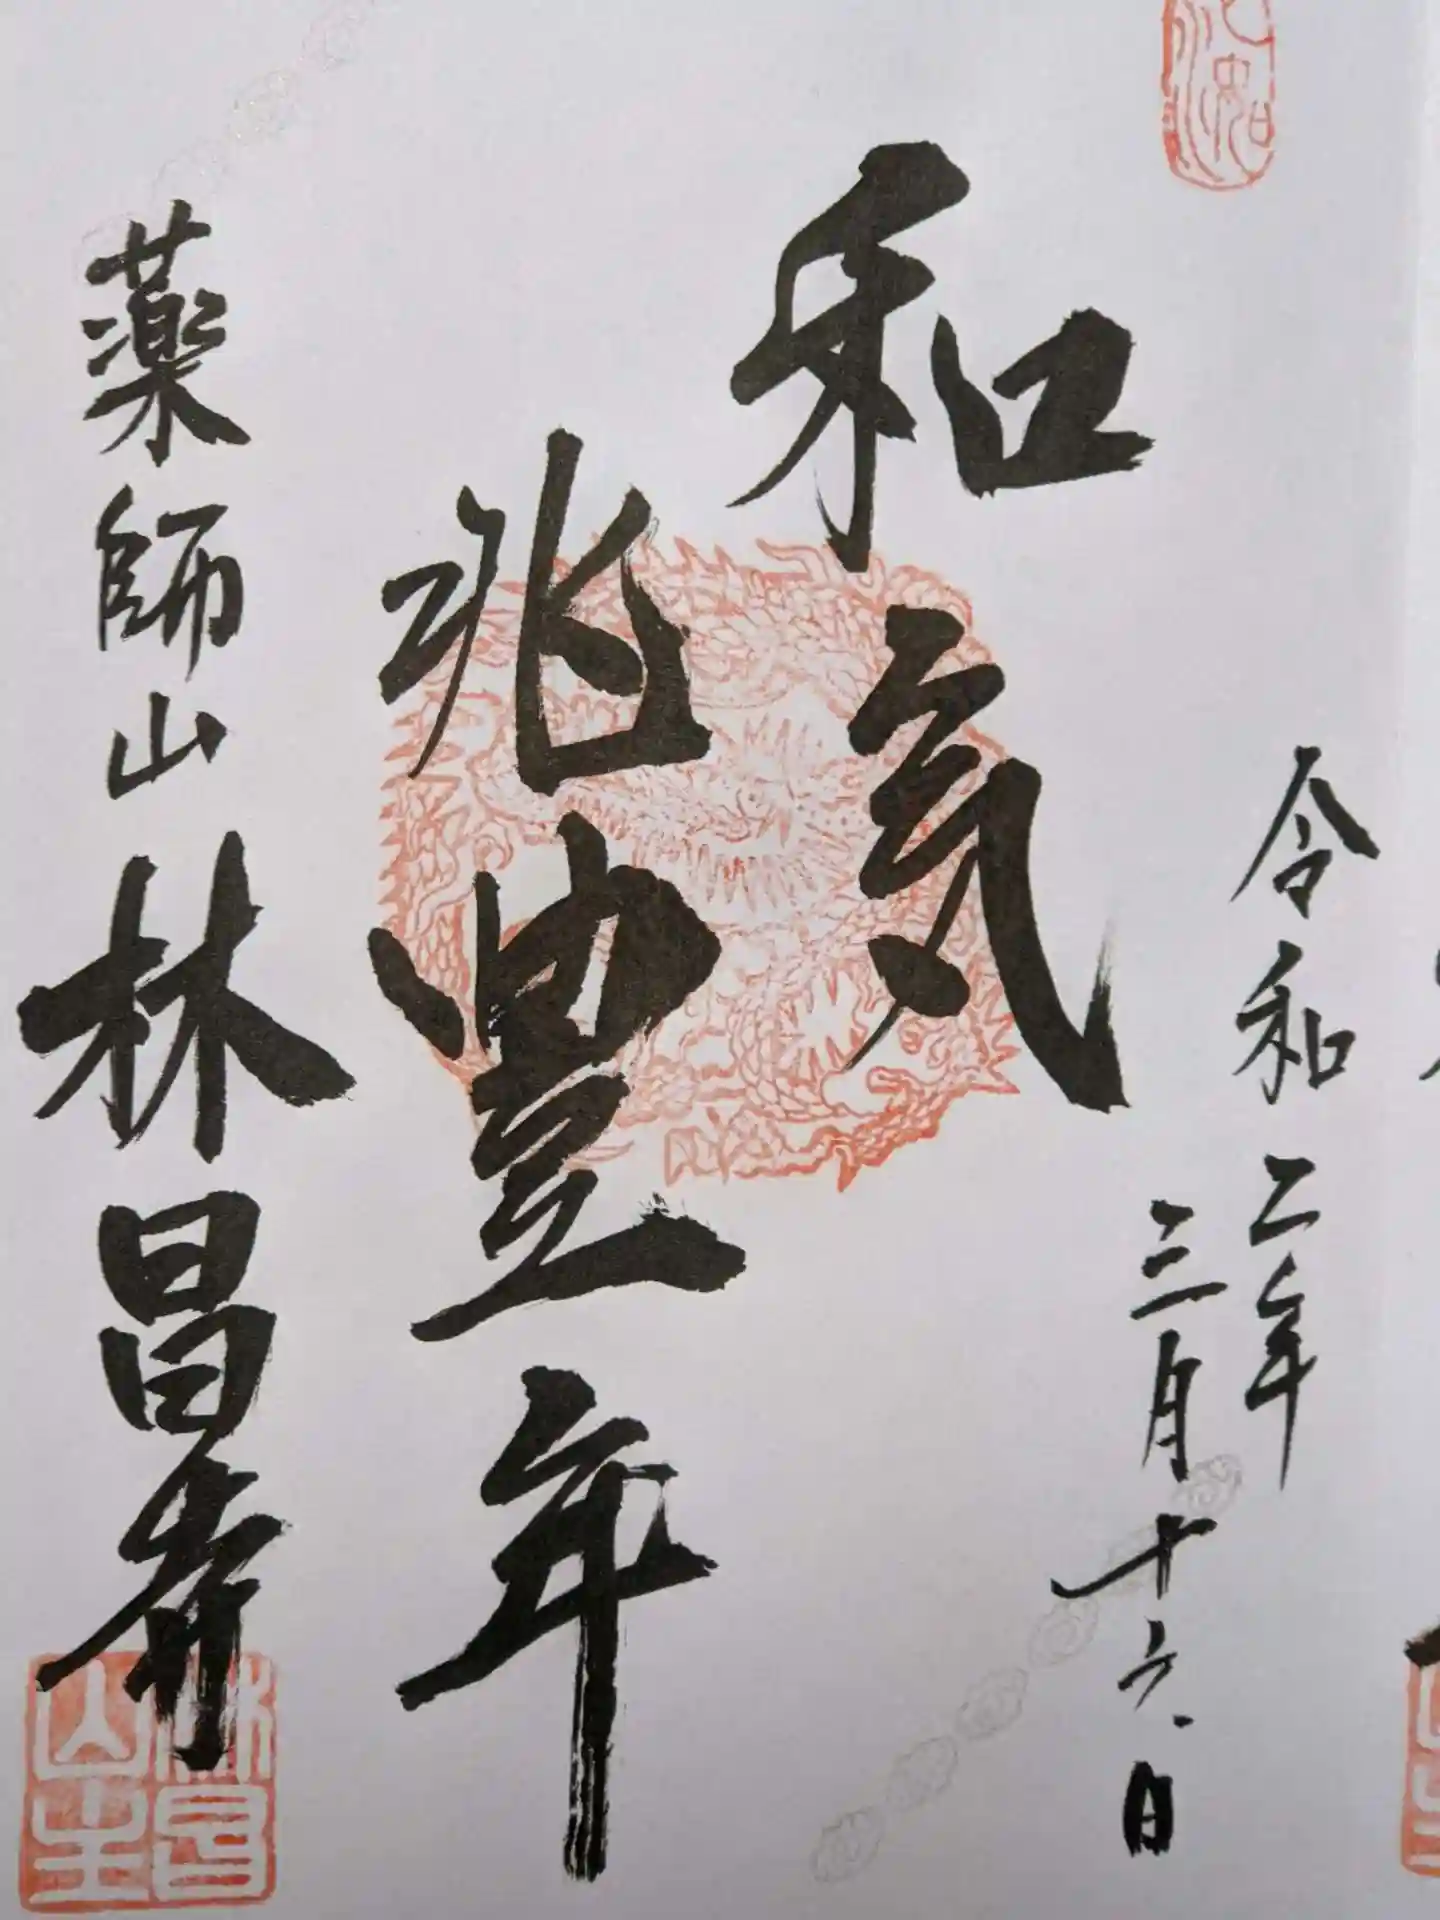 令和二年
三月十六日
和気
兆豊年
薬師山
林昌寺
林昌
山主